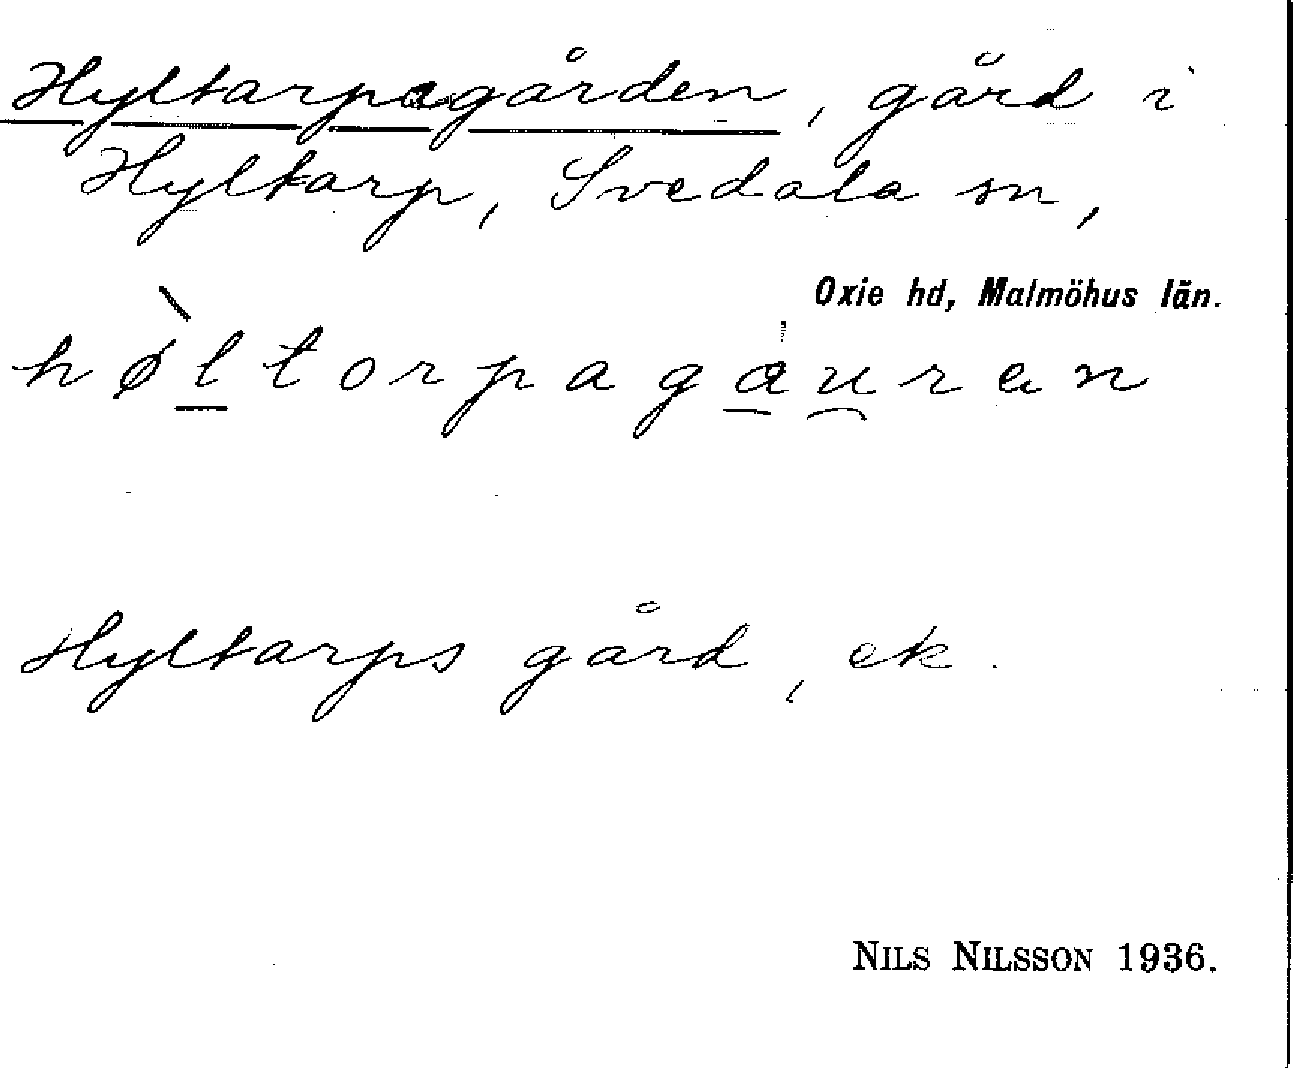 Hyltarpagården, gård i
Hyltarp, Svedala sn,
Oxie hd, Malmöhus län.
hø̀ltorpagæu̯ran
Hyltarps gård, ek.
NILS NILSSON 1936.